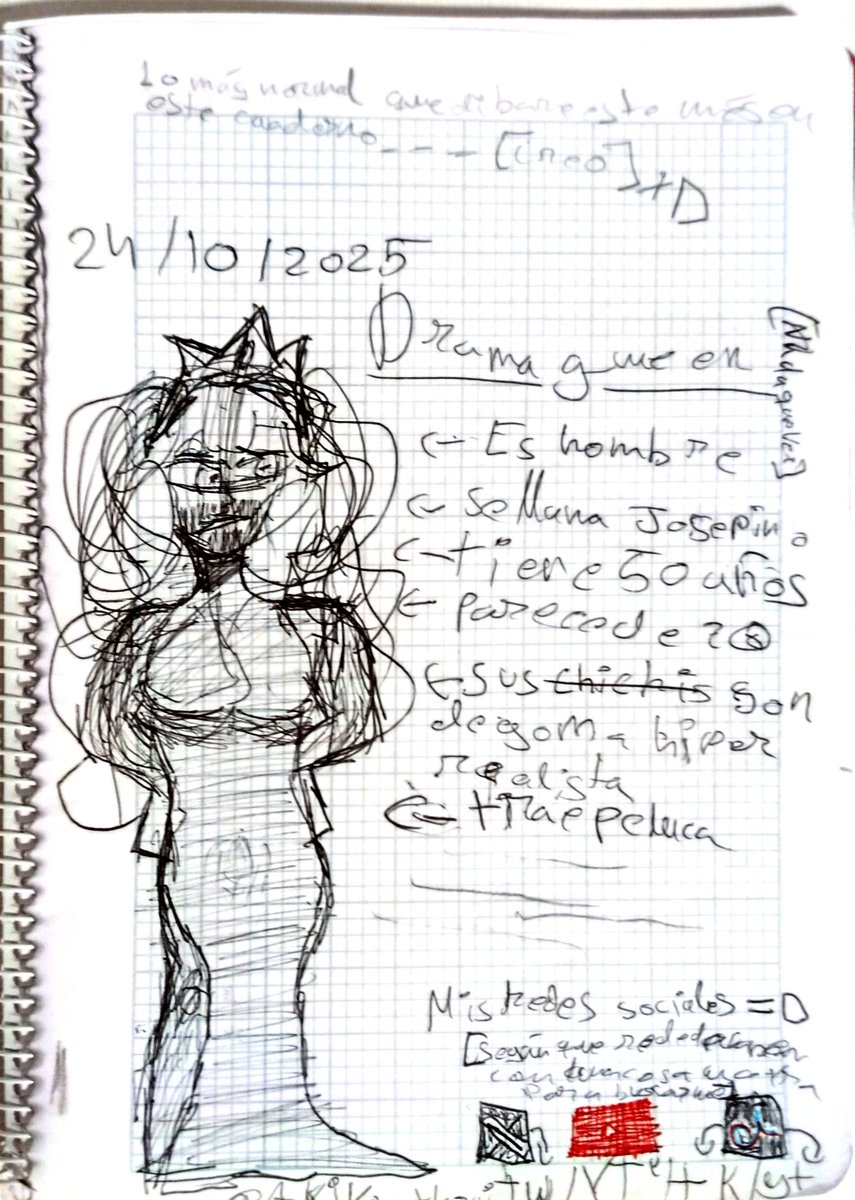 Lo más normal que dibare este mes en
este cuaderno --- [creo]
+D
24/10/2025
Drama queen
[Nada que ver]
← Es hombre
← se llama Josepino
← tiene 50 años
← parece de 20
← sus chichis son
de goma hiper
realista
← trae peluca
Mis redes sociales =D
[según que red
para
tw/YT/tk/yt